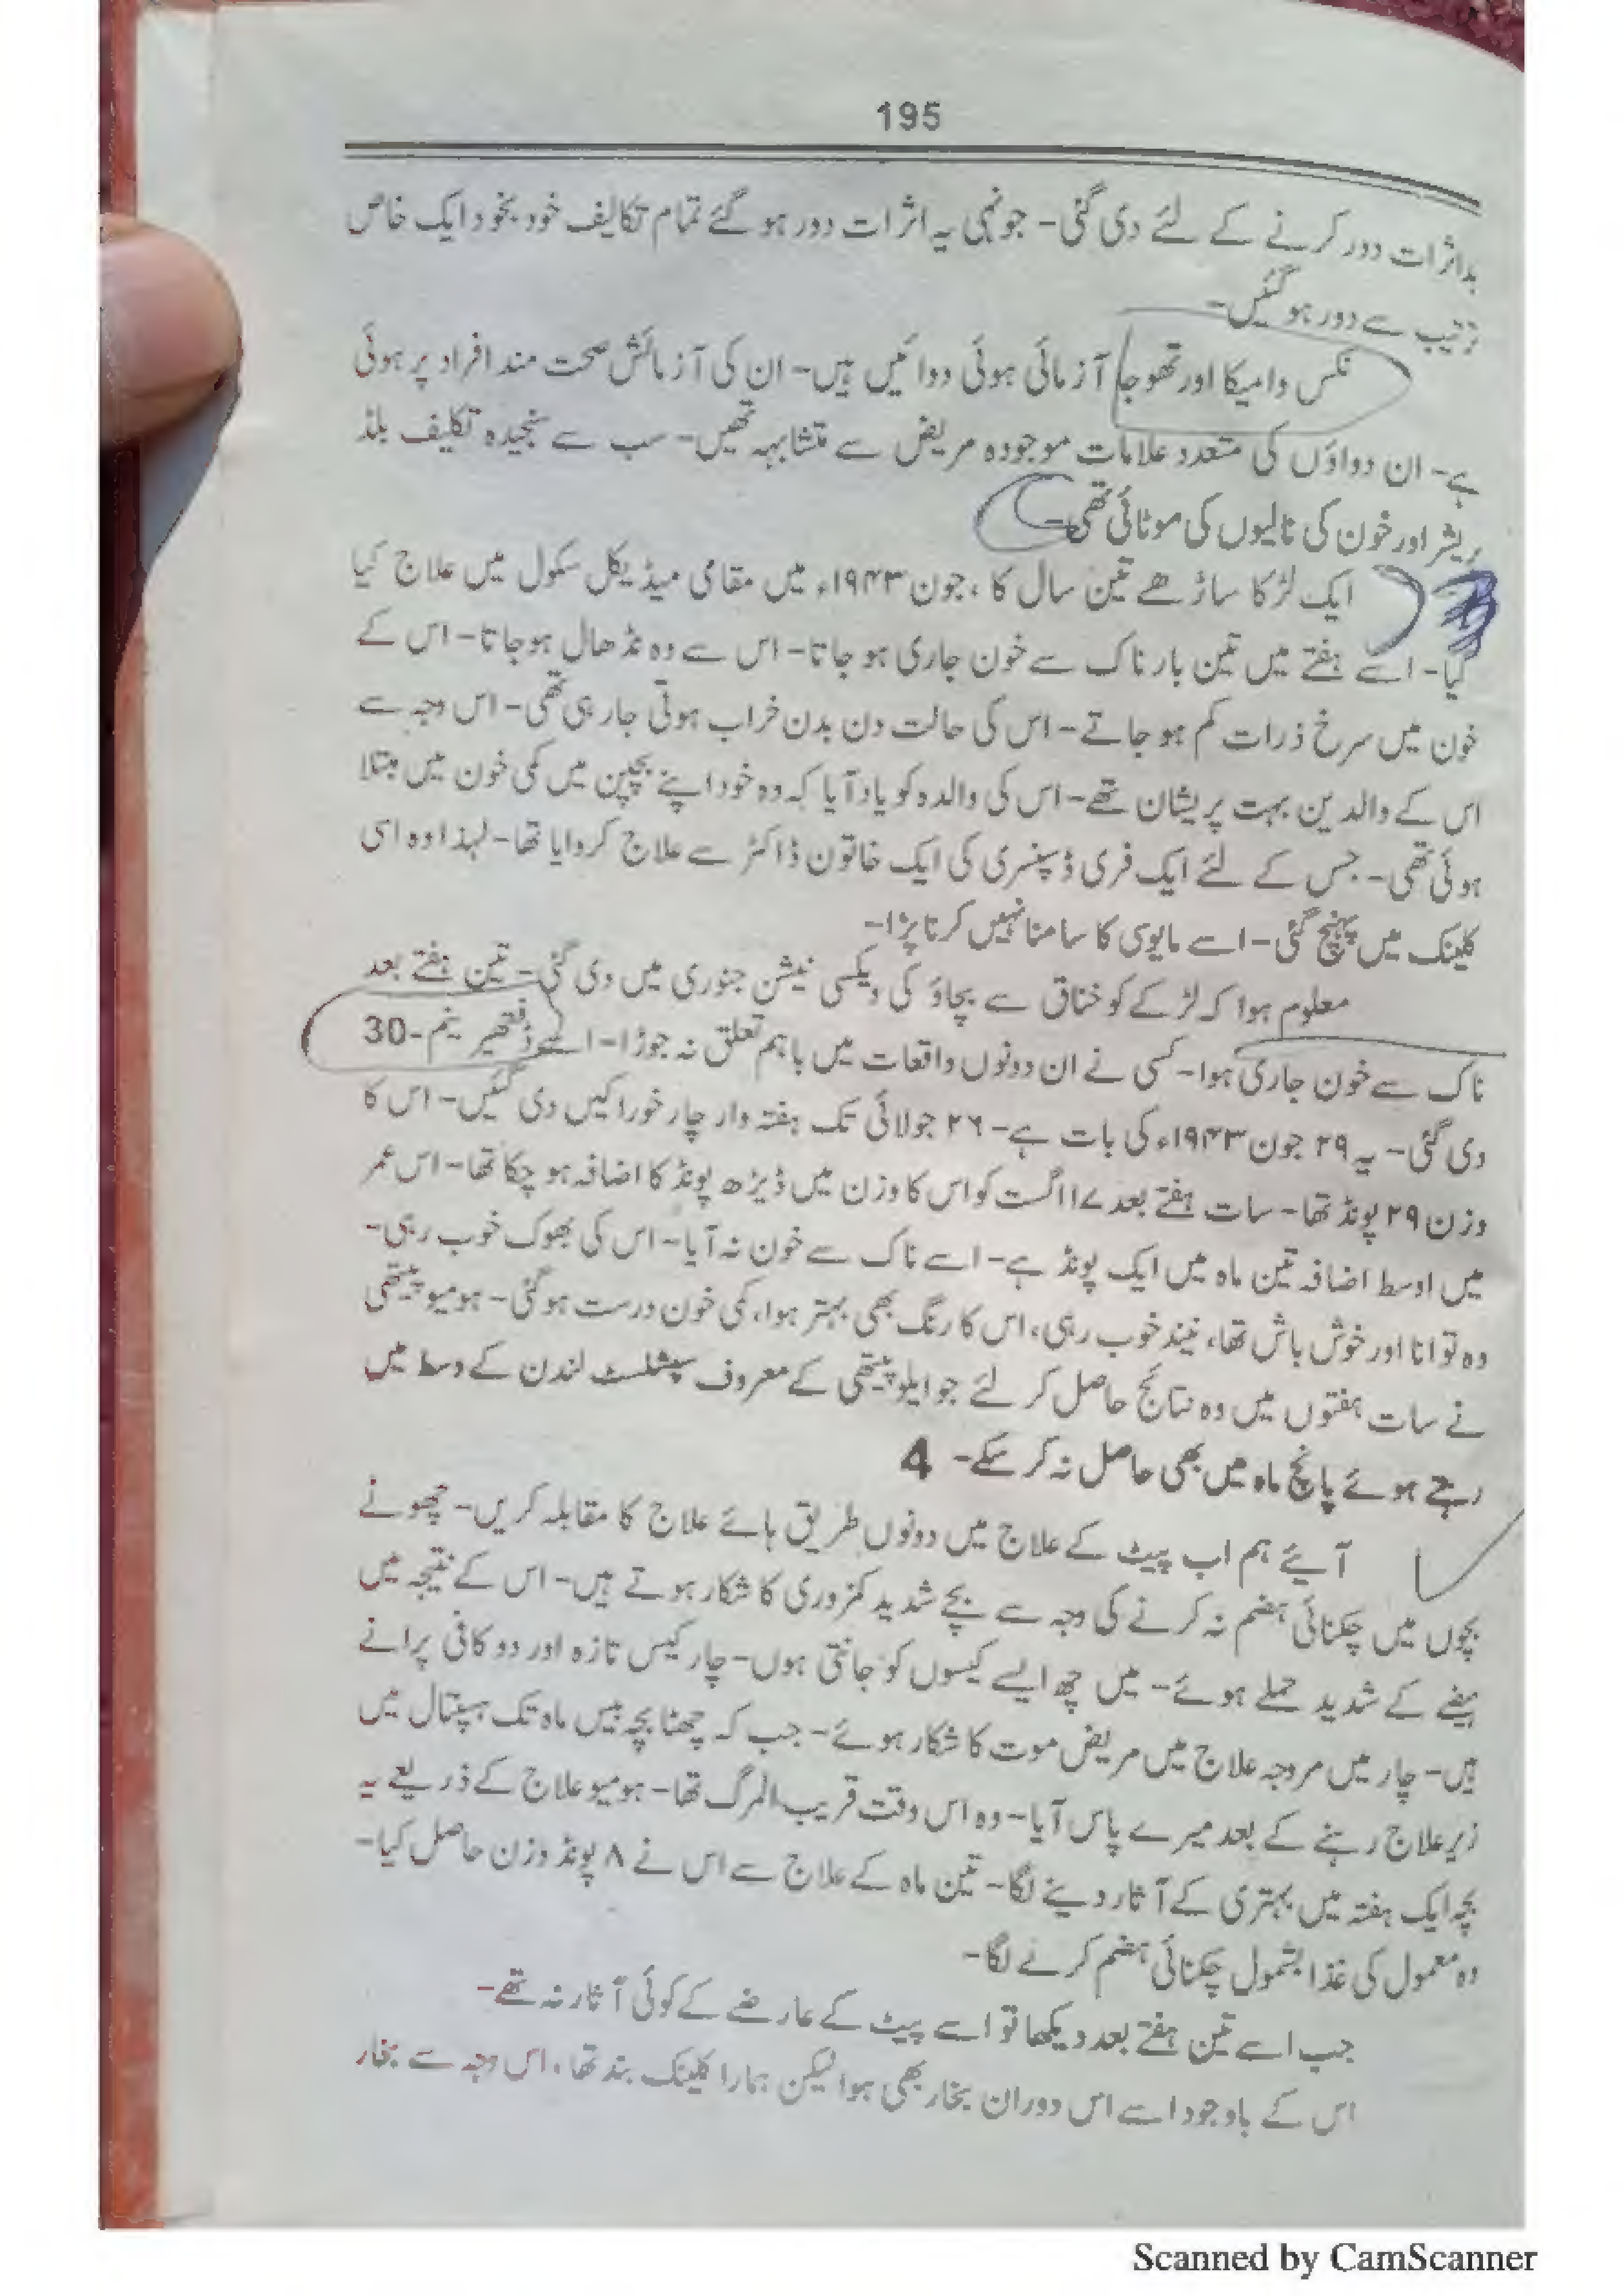 195
بداثرات دور کرنے کے لئے دی گئی۔ جونہی یہ اثرات دور ہو گئے تمام تکالیف خود بخود ایک خاص
ترتیب سے دور ہو گئیں۔
نکس وامیکا اور تھوجا آزمائی ہوئی دوائیں ہیں۔ ان کی آزمائش صحت مند افراد پر ہوئی
ہے۔ ان دواؤں کی متعدد علامات موجودہ مریض سے متشابہہ تھیں۔ سب سے سنجیدہ تکلیف بلڈ
پریشر اور خون کی نالیوں کی موٹائی تھی۔
ایک لڑکا ساڑھے تین سال کا، جون ۱۹۴۳ء میں مقامی میڈیکل سکول میں علاج کیا
گیا۔ اسے ہفتے میں تین بار ناک سے خون جاری ہو جاتا۔ اس سے وہ نڈھال ہو جاتا۔ اس کے
خون میں سرخ ذرات کم ہو جاتے۔ اس کی حالت دن بدن خراب ہوتی جا رہی تھی۔ اس وجہ سے
اس کے والدین بہت پریشان تھے۔ اس کی والدہ کو یاد آیا کہ وہ خود اپنے بچپن میں کمی خون میں مبتلا
ہوئی تھی۔ جس کے لئے ایک فری ڈسپنسری کی ایک خاتون ڈاکٹر سے علاج کروایا تھا۔ لہذا وہ اسی
کلینک میں پہنچ گئی۔ اسے مایوسی کا سامنا نہیں کرنا پڑا۔
معلوم ہوا کہ لڑکے کو خناق سے بچاؤ کی ویکسی نیشن جنوری میں دی گئی۔ تین ہفتے بعد
ناک سے خون جاری ہوا۔ کسی نے ان دونوں واقعات میں باہم تعلق نہ جوڑا۔ اسے ڈفتھیرینم-30
دی گئی۔ یہ ۲۹ جون ۱۹۴۳ء کی بات ہے۔ ۲۶ جولائی تک ہفتہ وار چار خوراکیں دی گئیں۔ اس کا
وزن ۲۹ پونڈ تھا۔ سات ہفتے بعد ۱۷ اگست کو اس کا وزن میں ڈیڑھ پونڈ کا اضافہ ہو چکا تھا۔ اس عمر
میں اوسط اضافہ تین ماہ میں ایک پونڈ ہے۔ اسے ناک سے خون نہ آیا۔ اس کی بھوک خوب رہی۔
وہ توانا اور خوش باش تھا، نیند خوب رہی، اس کا رنگ بھی بہتر ہوا، کمی خون درست ہو گئی۔ ہومیوپیتھی
نے سات ہفتوں میں وہ نتائج حاصل کر لئے جو ایلوپیتھی کے معروف سپیشلسٹ لندن کے وسط میں
رہتے ہوئے پانچ ماہ میں بھی حاصل نہ کر سکے۔ 4
آیئے ہم اب پیٹ کے علاج میں دونوں طریق ہائے علاج کا مقابلہ کریں۔ چھوٹے
بچوں میں چکنائی ہضم نہ کرنے کی وجہ سے بچے شدید کمزوری کا شکار ہوتے ہیں۔ اس کے نتیجہ میں
ہیضے کے شدید حملے ہوئے۔ میں چھ ایسے کیسوں کو جانتی ہوں۔ چار کیس تازہ اور دو کافی پرانے
ہیں۔ چار میں مروجہ علاج میں مریض موت کا شکار ہوئے۔ جب کہ چھٹا بچہ بیس ماہ تک ہسپتال میں
زیر علاج رہنے کے بعد میرے پاس آیا۔ وہ اس وقت قریب المرگ تھا۔ ہومیو علاج کے ذریعے یہ
بچہ ایک ہفتہ میں بہتری کے آثار دینے لگا۔ تین ماہ کے علاج سے اس نے ۸ پونڈ وزن حاصل کیا۔
وہ معمول کی غذا بشمول چکنائی ہضم کرنے لگا۔
جب اسے تین ہفتے بعد دیکھا تو اسے پیٹ کے عارضے کے کوئی آثار نہ تھے۔
اس کے باوجود اسے اس دوران بخار بھی ہوا لیکن ہمارا کلینک بند تھا، اس وجہ سے بخار
Scanned by CamScanner